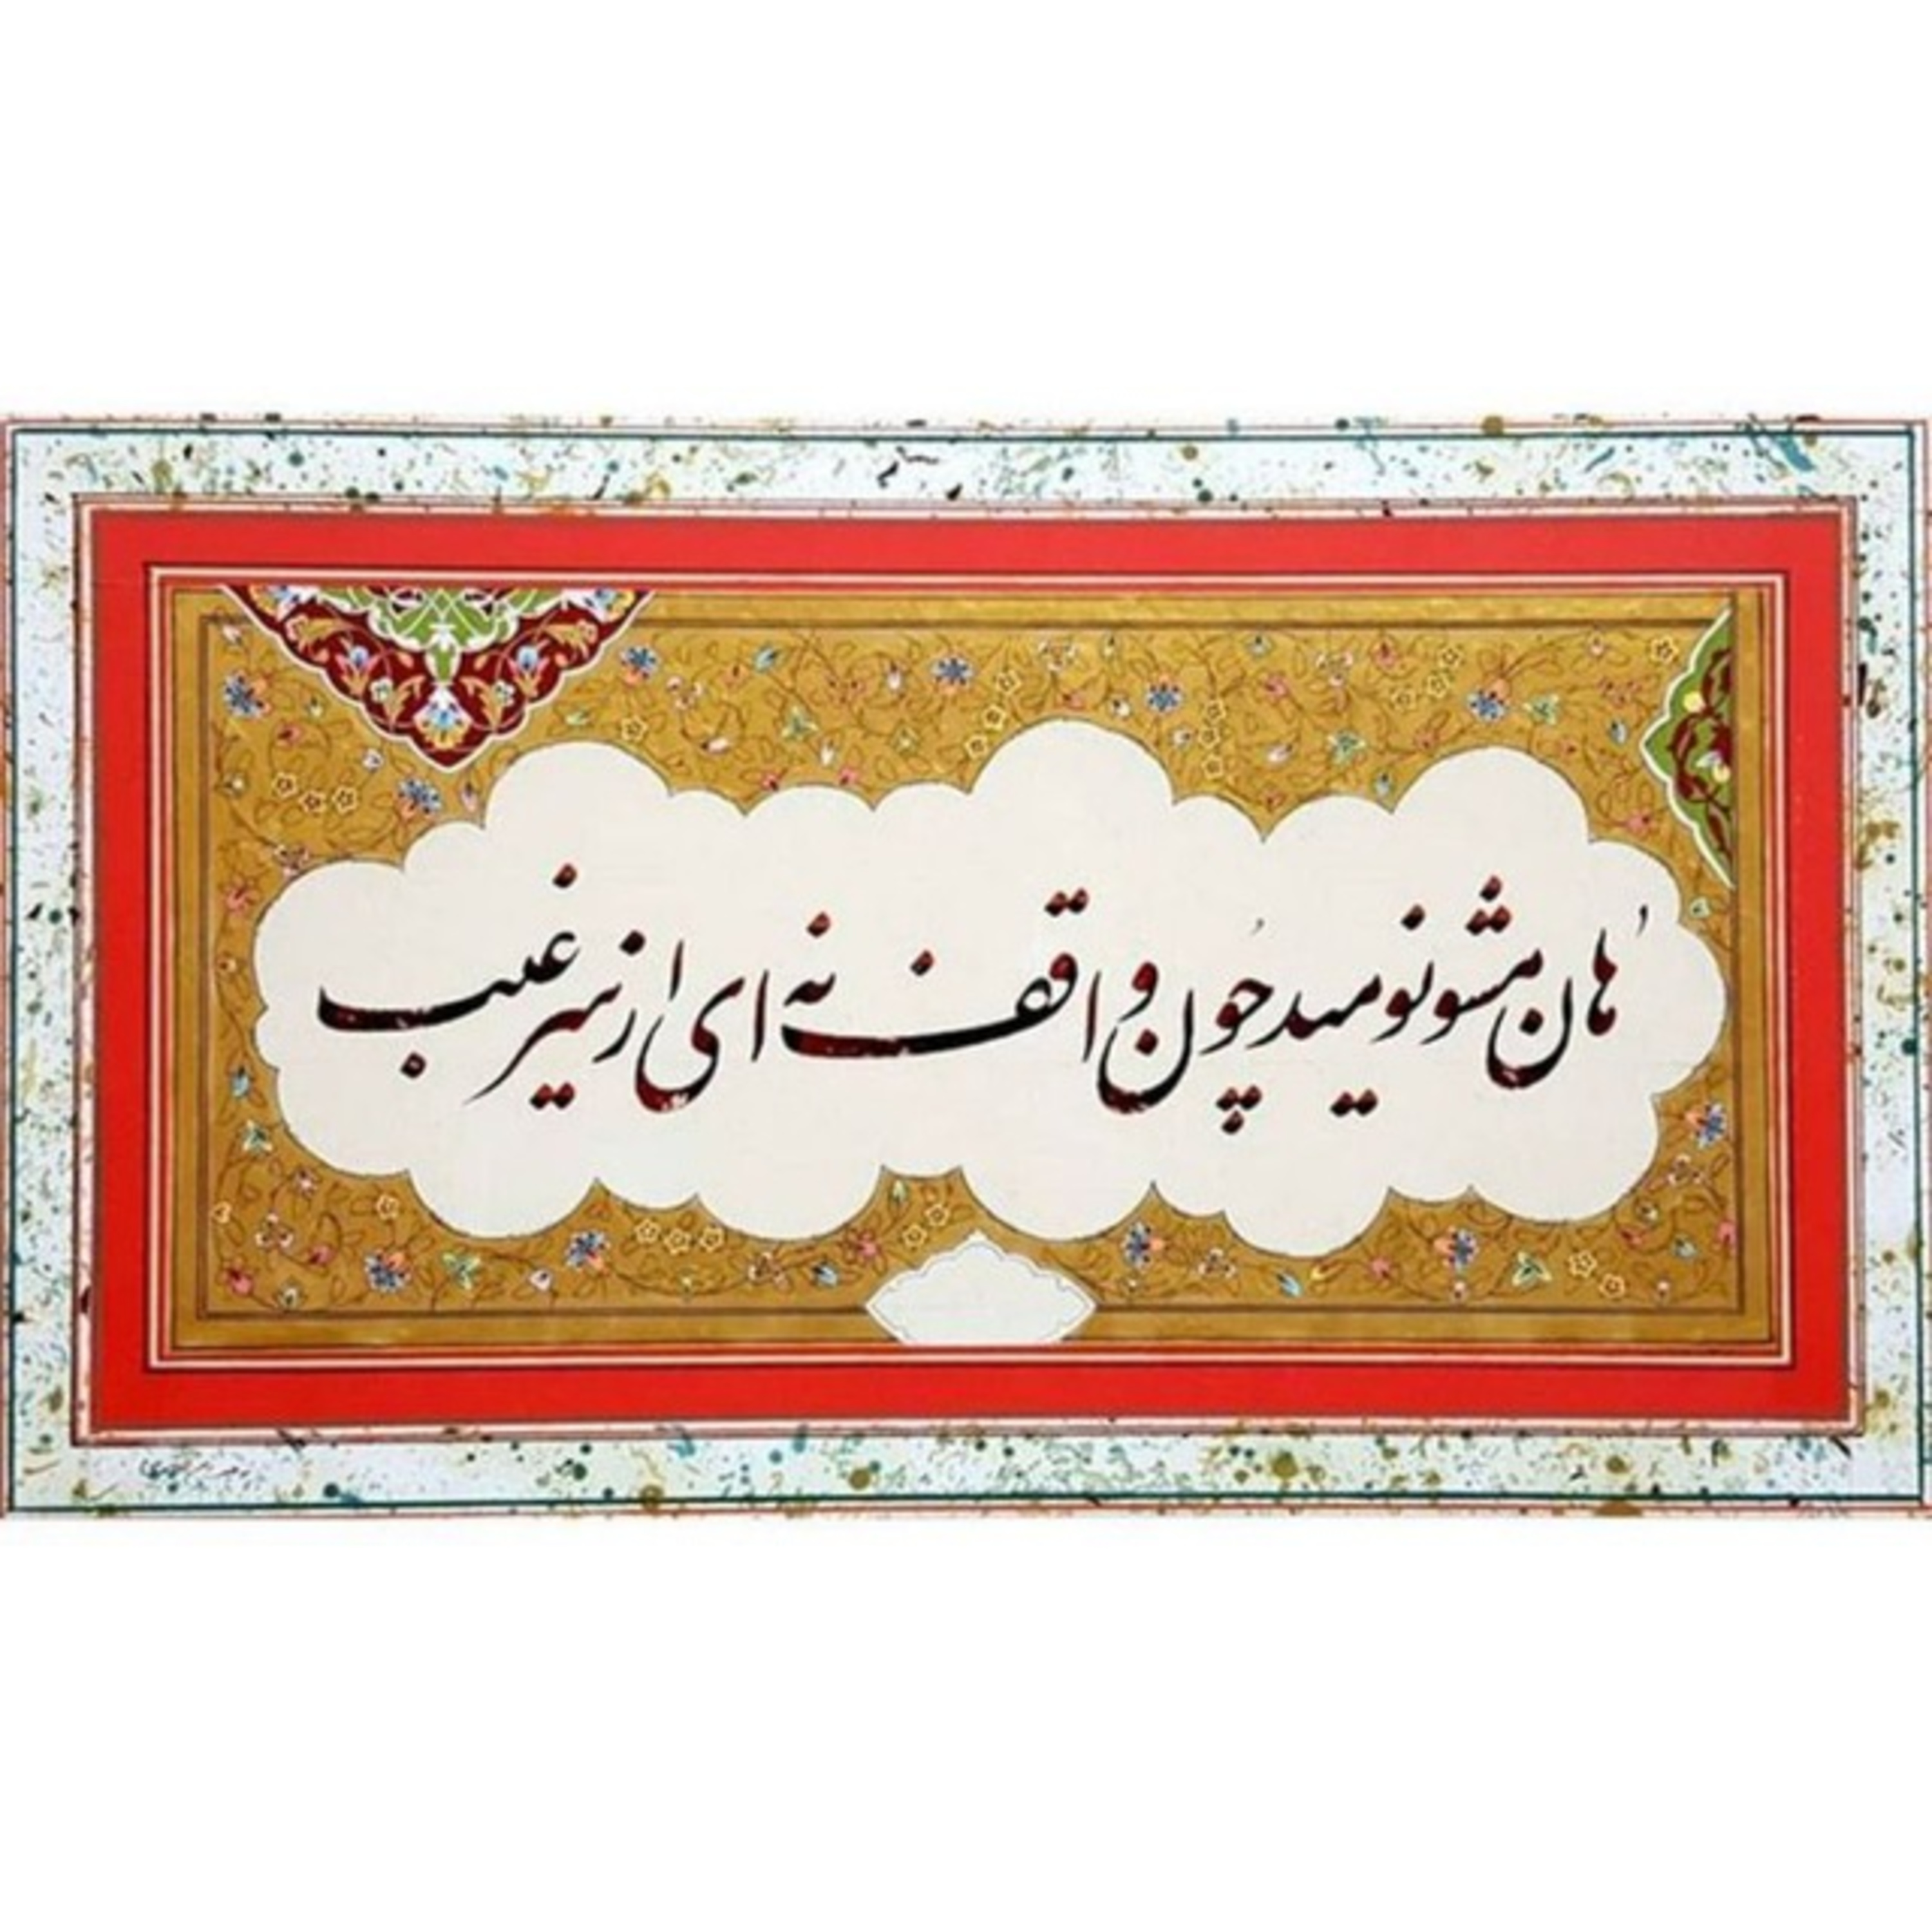 هان مشو نومید چون واقف نه ای از سر غیب